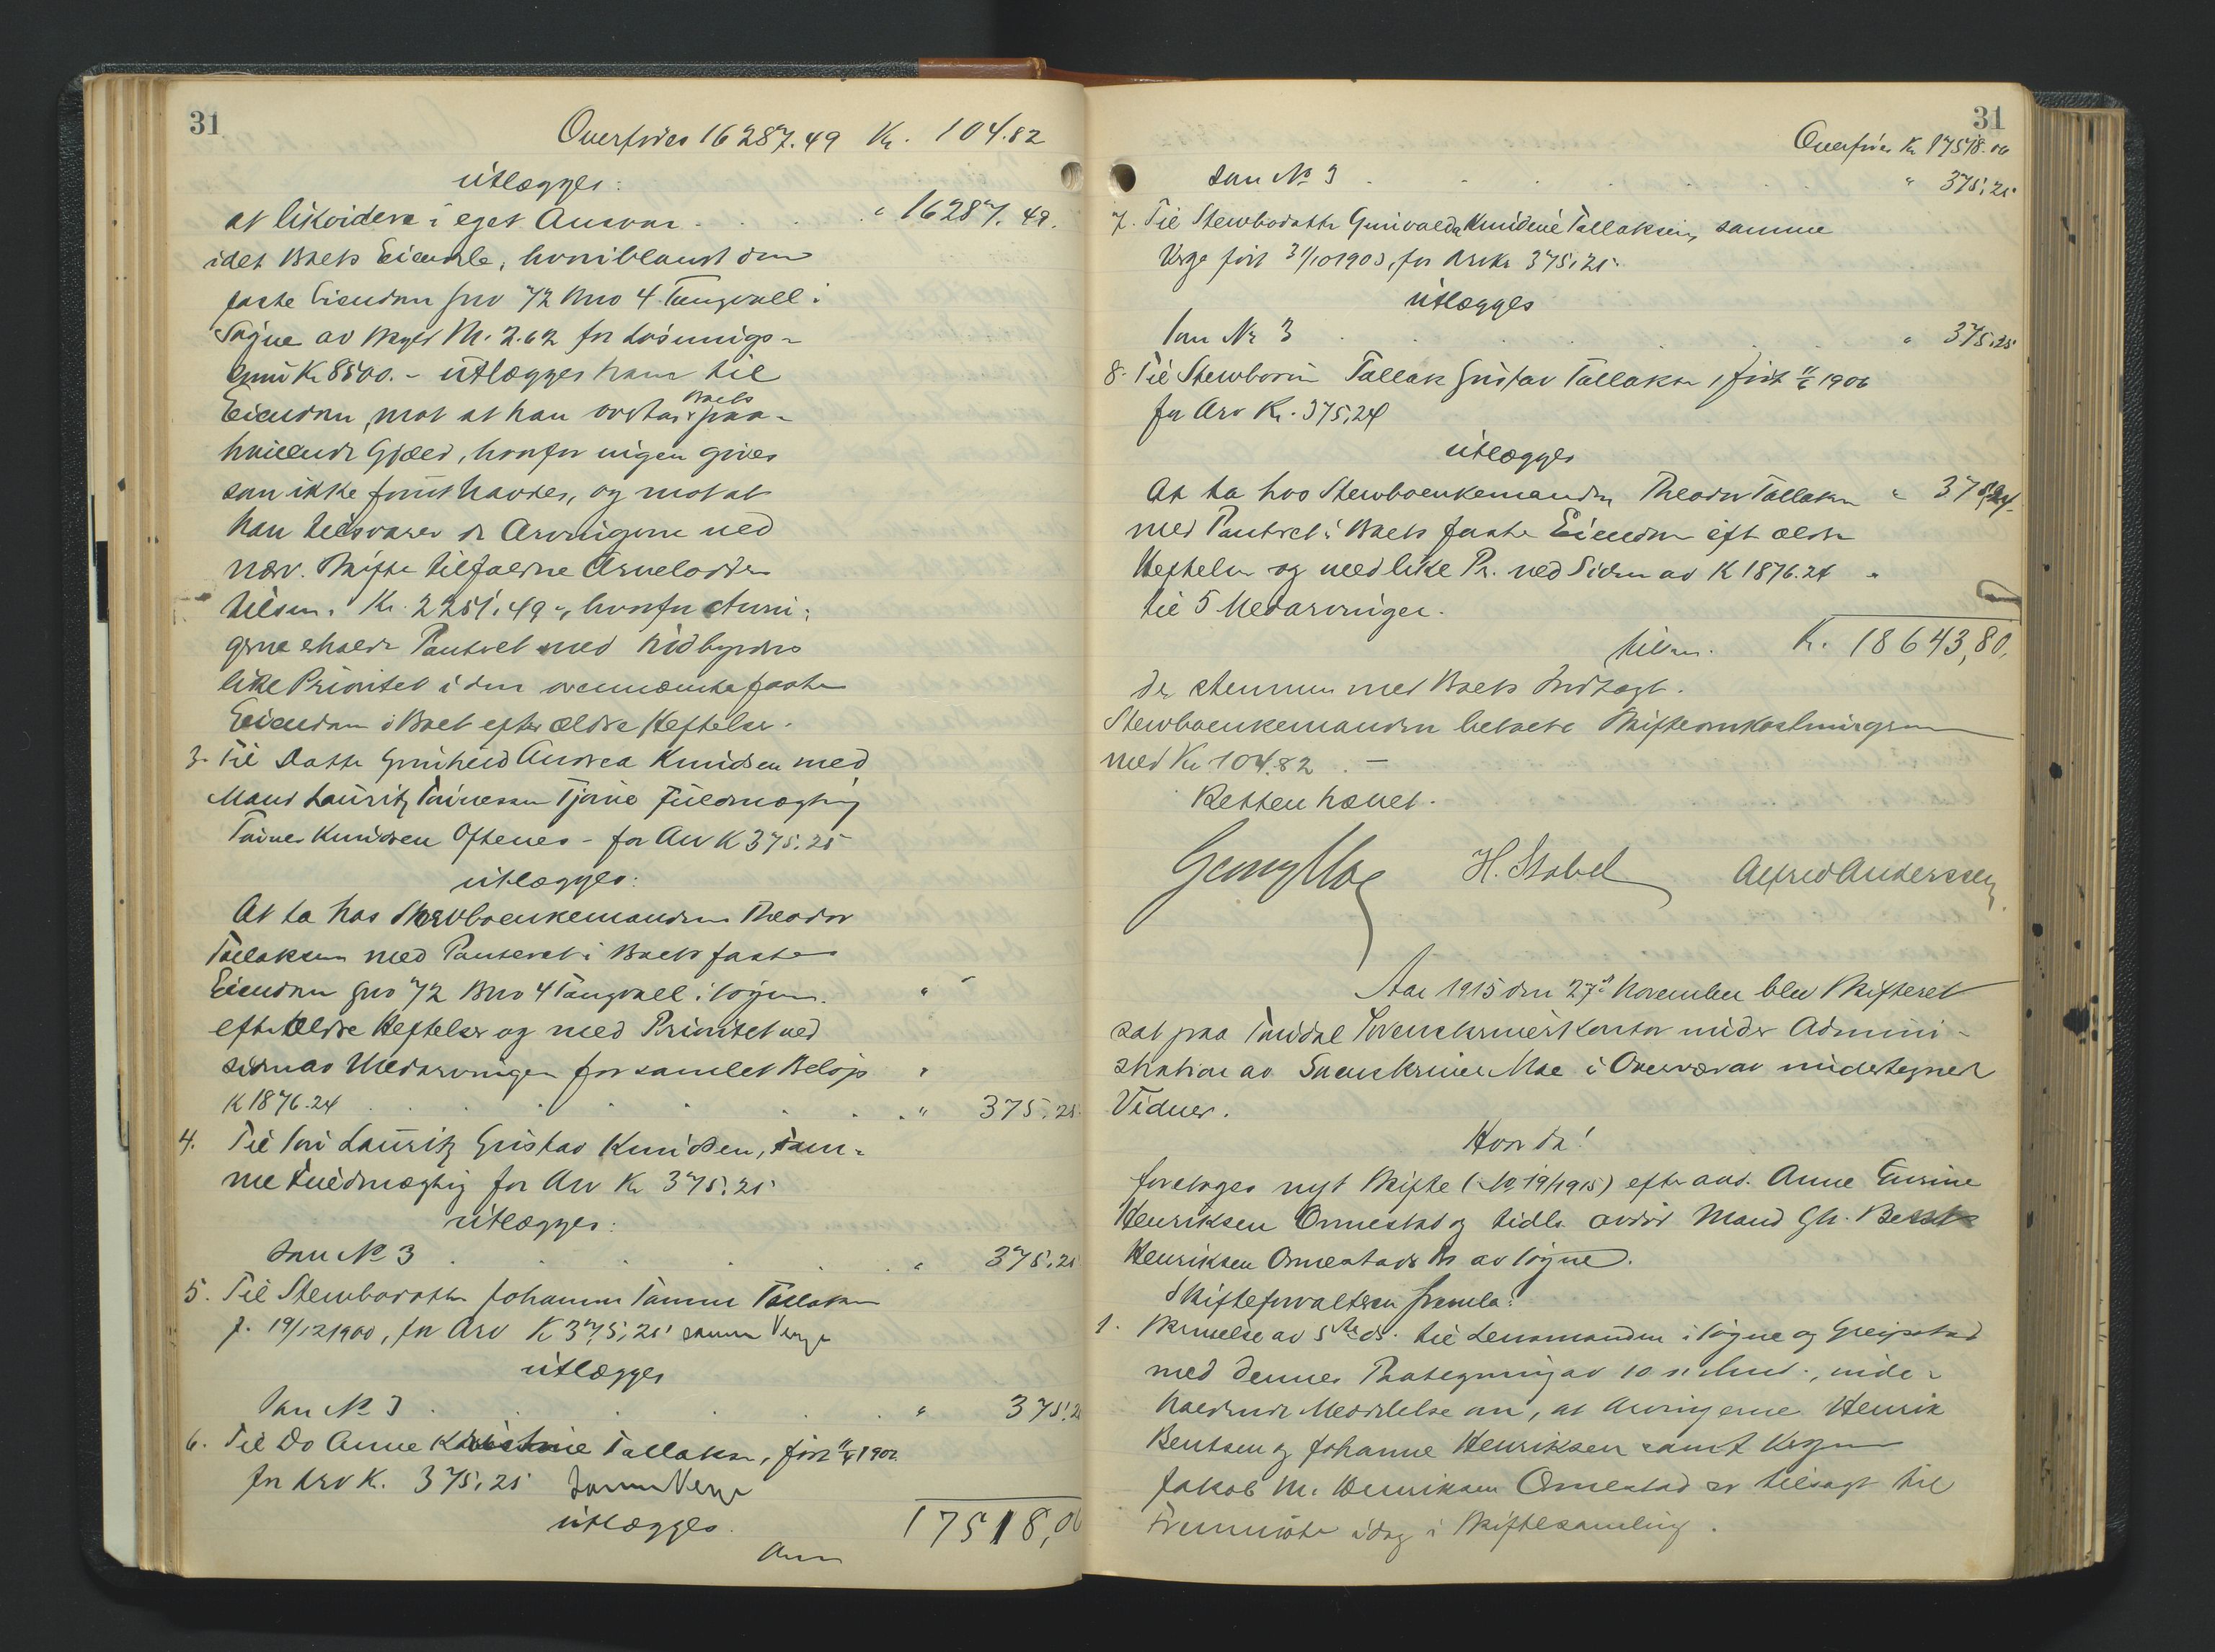 31
Overføres 16287.49 Kr. 104.82
utlægges:
at likvidere i eget Ansvar . . . " 16287.49.
idet Boets Eiendele, hvoriblandt den
faste Eiendom gno 72 bno 4 Tangvall i
Søgne av Skyld M. 2.62 for Løsnings-
sum Kr 8500.- utlægges ham til
Eiendom, mot at han overtar Boets paa-
hvilende Gjæld, hvorfor ingen gives
som ikke forut havdes, og mot at
han tilsvarer de Arvingerne ved
nærv. Skifte tilfaldne Arvelodder
tilsm. Kr. 2251,49-, hvorfor Arvin-
gerne erholder Panteret med indbyrdes
like Prioritet i den ovennævnte faste
Eiendom i Boet efter ældre Heftelser.
3. Til Datter Gunhild Andrea Knudsen med
Mand Lauritz Tønnessen Tjorve Fuldmægtig
Tønnes Knudsen Oftenes - for Arv K 375.25
utlægges:
At ta hos Stervboenkemanden Theodor
Tallaksen med Panteret i Boets faste
Eiendom gno 72 Bno 4 Tangvall i Søgne.
efter ældre Heftelser og med Prioritet ved
siden av Medarvinger for samlet Beløp
K 1876.24 . . . " 375.25
4. Til Søn Lauritz Gustav Knudsen, sam-
me Fuldmægtig for Arv Kr 375.25
utlægges:
Som No 3 . . . " 375.25
5. Til Stervbodatter Johanne Tomine Tallaksen
f. 19/12 1900, for Arv K 375,25 samme Verge
utlægges
Som No 3 . . . " 375.25
6. Til Do Anne Kristine Tallaksen, født 11/4 1902
for Arv K. 375,25 Samme Verge
utlægges.
17518,06
31
Overføres Kr 17518.06
Som No 3 . . . " 375,25
7. Til Stervbodatter Gunvalda Knudine Tallaksen, samme
Verge født 31/10 1903, for Arv Kr 375,25.
utlægges
Som Nr 3 . . . " 375,25
8. Til Stervbosøn Tallak Gustav Tallaksen, født 1906
for Arv Kr. 375,24
utlægges
At ta hos Stervboenkemanden Theodor Tallaksen " 375,24
med Panteret i Boets faste Eiendom eft. ældre
Heftelser og med like Pr. ved Siden av K 1876.24
til 5 Medarvinger.
tilsm. Kr. 18643,80.
der stemmer med Boets Indtægt.
Stervboenkemanden betalte Skifteomkostningerne
med Kr 104.82. -
Retten hævet.
Georg Moe H. Stabel Alfred Anderssen
Aar 1915 den 27de November blev Skifteret
sat paa Torridal Sorenskriverkontor under Admini-
stration av Sorenskriver Moe i Overvær av undertegnede
Vidner.
Hvor da!
foretoges nyt Skifte (No 19/1915) efter avd. Anne Gurine
Henriksen Ormestad og tidl. avdød Mand Gh. Bent
Henriksen Ormestads Bo av Søgne.
Skifteforvalteren fremla:
1. Skrivelse av 5te ds. til Lensmanden i Søgne og Greipstad
med dennes Paategning av 10 s. Mnd., inde-
holdende Meddelelse om, at Arvingerne Henrik
Bentsen og Johanne Henriksen samt Vergen
Jakob M. Henriksen Ormestad er tilsagt til
Fremmøte idag i Skiftesamling.